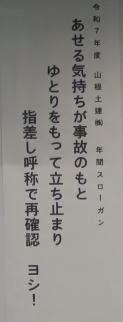 令和７年度　山根土建㈱　年間スローガン
あせる気持ちが事故のもと
ゆとりをもって立ち止まり
指差し呼称で再確認　ヨシ！